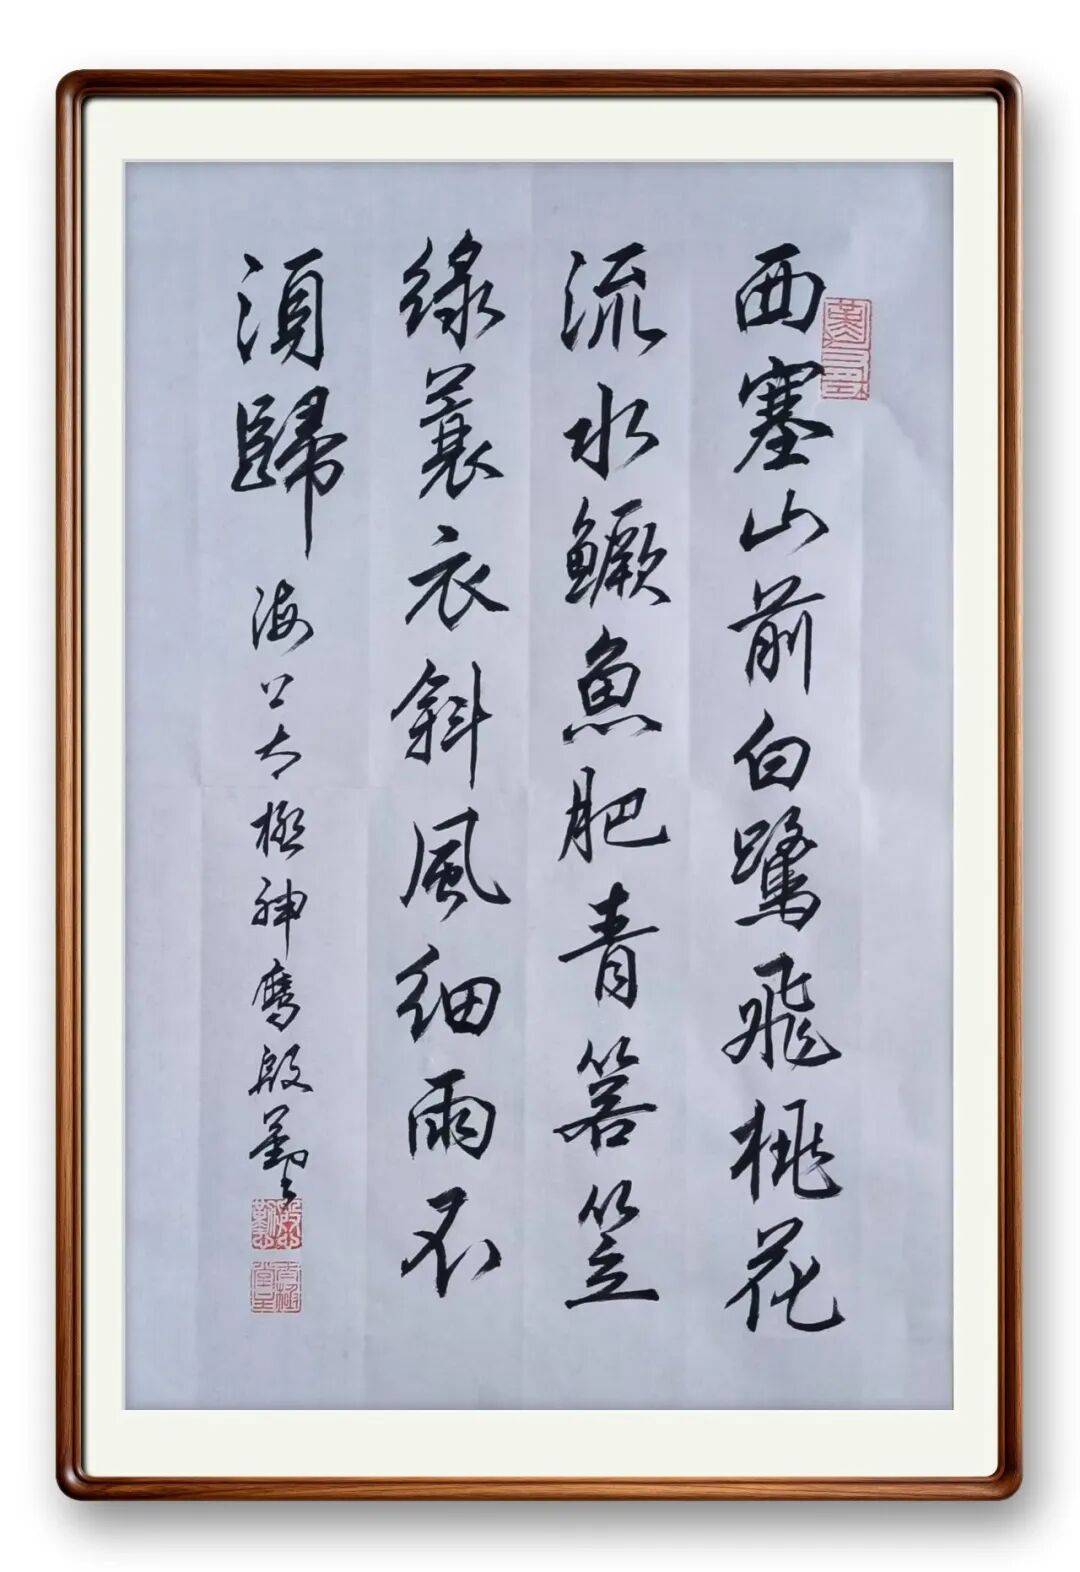 西塞山前白鹭飛桃花
流水鳜魚肥青箬笠
緑蓑衣斜風細雨不
須歸
海上太極神鹰殷勤